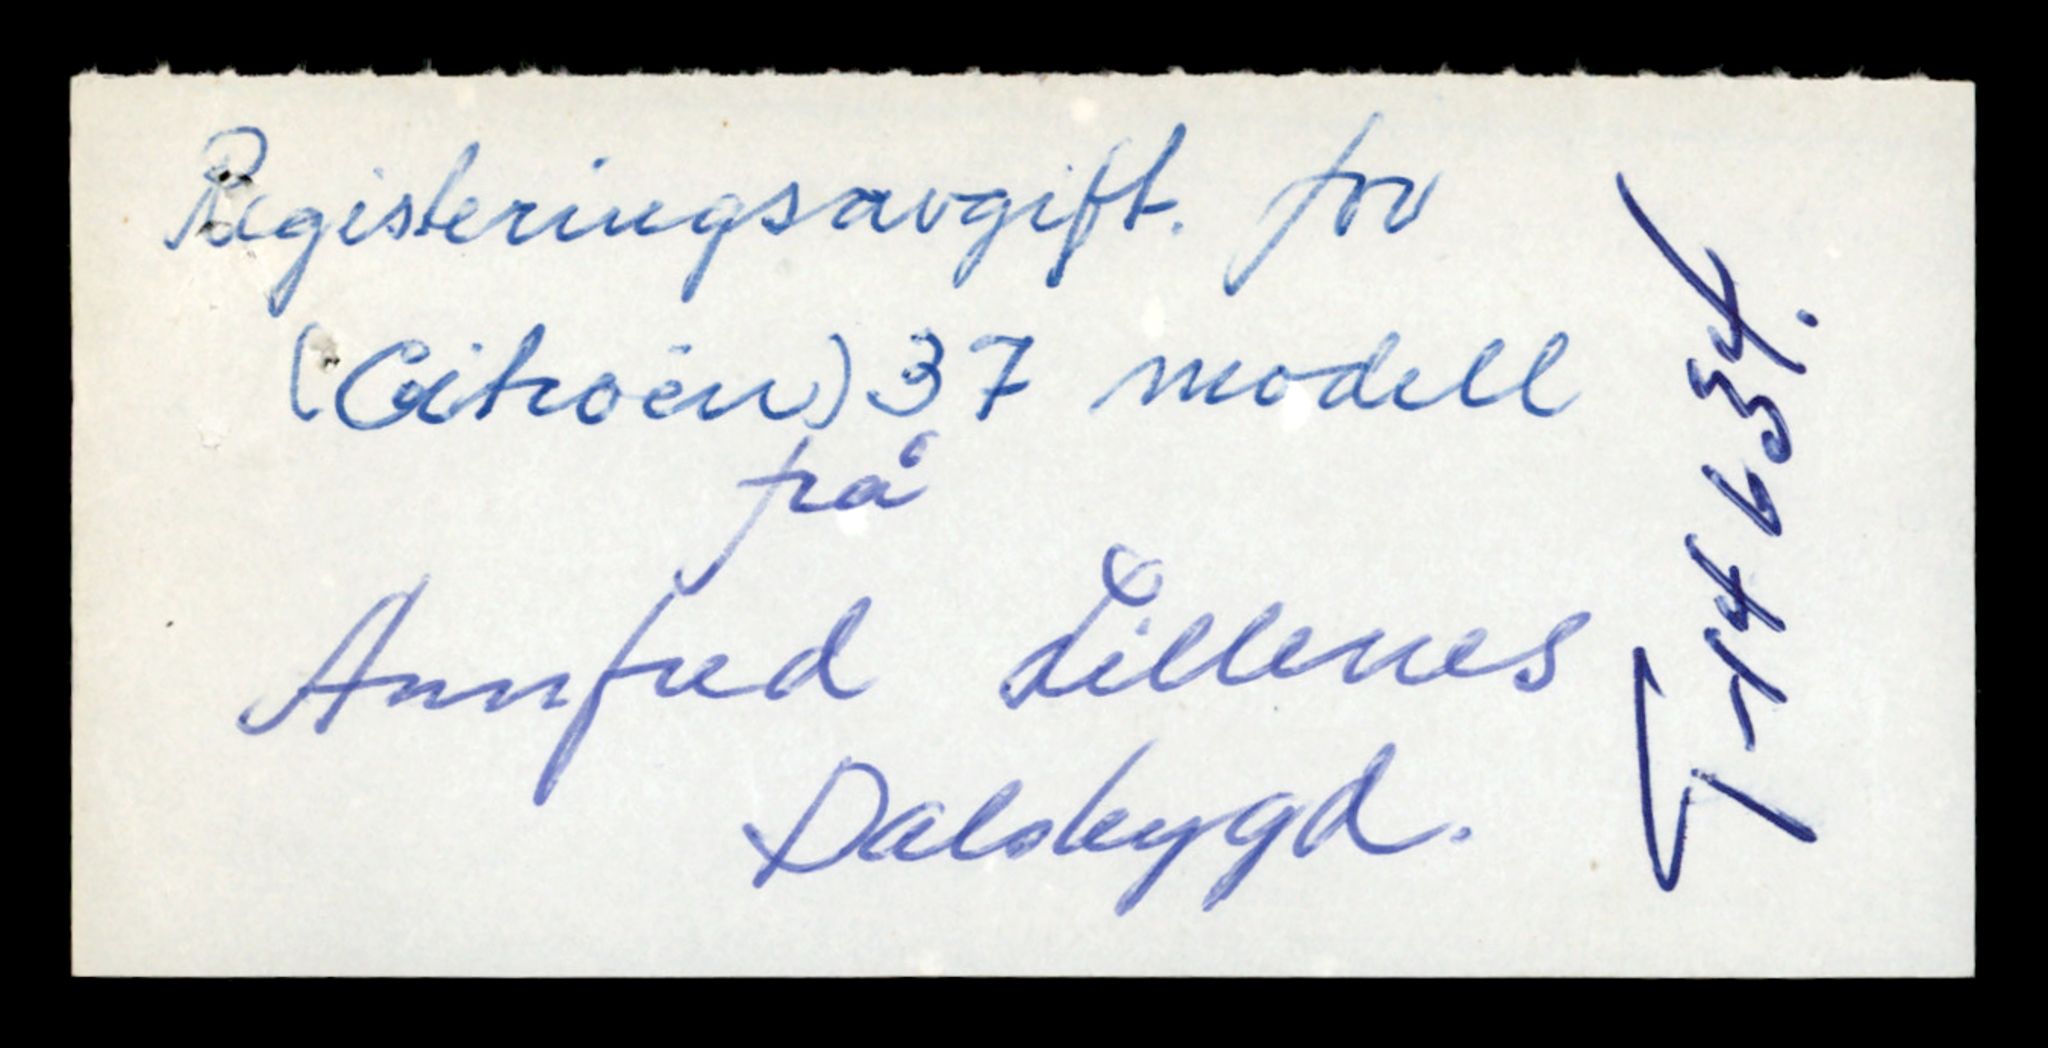 Registeringsavgift. for
(Citroën) 37 modell
frå
Annfred Lillenes
Dalsbygd.
T-14634.